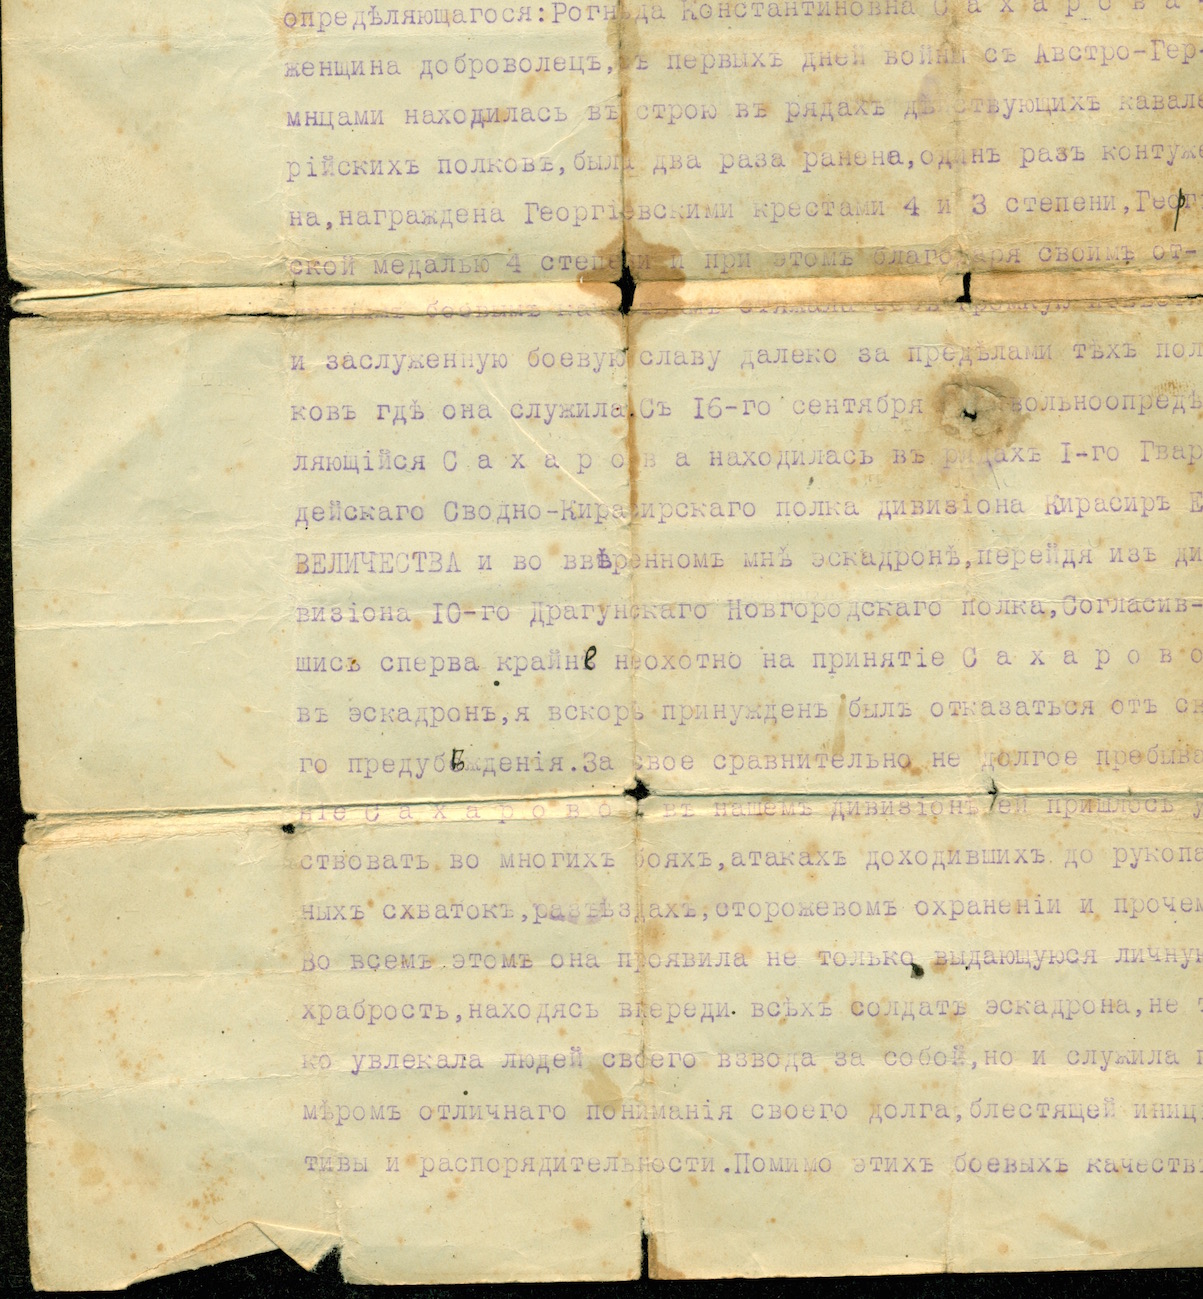 опредѣляющагося:Рогнѣда Константиновна С а х а р о в а
женщина доброволецъ, первыхъ дней войны съ Австро-Гер-
мнцами находилась въ строю въ рядахъ дѣйствующихъ кавале
рійскихъ полковъ,была два раза ранена,одинъ разъ контуже
на,награждена Георгіевскими крестами 4 и 3 степени,Георг
ской медалью 4 степени и при этомъ благодаря своимъ от-
боевымъ стяжала себѣ громкую
и заслуженную боевую славу далеко за предѣлами тѣхъ пол
ковъ гдѣ она служила.Съ 16-го сентября вольноопредѣ
ляющійся С а х а р о в а находилась въ рядахъ I-го Гвар
дейскаго Сводно-Кирасирскаго полка дивизіона Кирасиръ Е
ВЕЛИЧЕСТВА и во ввѣренномъ мнѣ эскадронѣ,перейдя изъ ди
визіона 10-го Драгунскаго Новгородскаго полка,Согласив-
шись сперва крайне неохотно на принятіе С а х а р о в о
въ эскадронъ,я вскорѣ принужденъ былъ отказаться отъ св
го предубѣжденія.За свое сравнительно не долгое пребыва
ніе С а х а р о в о й въ нашемъ дивизіонѣ ей пришлось у
ствовать во многихъ бояхъ,атакахъ доходившихъ до рукопа
ныхъ схватокъ,разъѣздахъ,сторожевомъ охраненіи и прочем
Во всемъ этомъ она проявила не только выдающуюся личну
храбрость,находясь впереди всѣхъ солдатъ эскадрона,не т
ко увлекала людей своего взвода за собой,но и служила п
мѣромъ отличнаго пониманія своего долга,блестящей иниц
тивы и распорядительности.Помимо этихъ боевыхъ качествъ